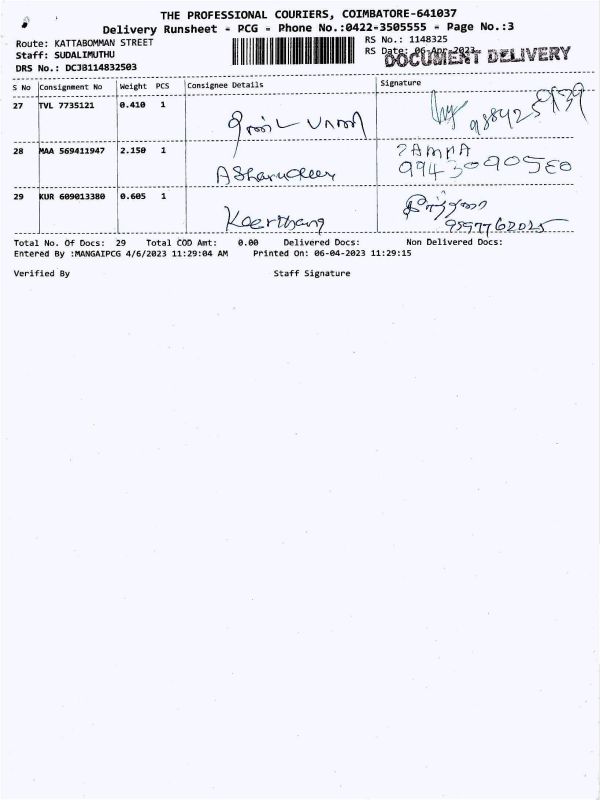 THE PROFESSIONAL COURIERS, COIMBATORE-641037
Delivery Runsheet - PCG - Phone No.:0422-3505555 - Page No.:3
Route: KATTABOMMAN STREET
Staff: SUDALIMUTHU
DRS No.: DCJB114832503
RS No.: 1148325
RS Date: 06-Apr-2023
DOCUMENT DELIVERY
S No Consignment No Weight PCS Consignee Details Signature
27 TVL 7735121 0.410 1
28 MAA 569411947 2.150 1
29 KUR 609013380 0.605 1
Keerthana
Total No. Of Docs: 29 Total COD Amt: 0.00 Delivered Docs: Non Delivered Docs:
Entered By :MANGAIPCG 4/6/2023 11:29:04 AM Printed On: 06-04-2023 11:29:15
Verified By Staff Signature